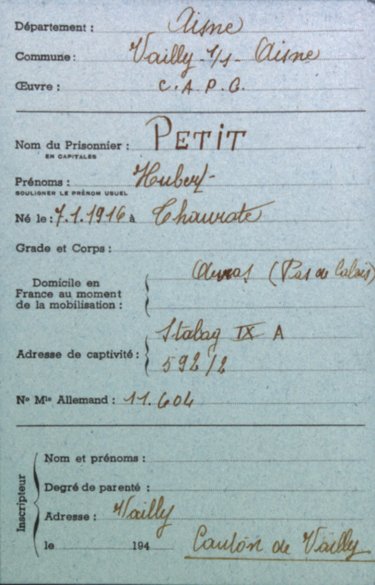 Département : Aisne
Commune : Vailly-s/s-Aisne
Œuvre : C.A.P.G.
Nom du Prisonnier : PETIT
EN CAPITALES
Prénoms : Hubert
SOULIGNER LE PRÉNOM USUEL
Né le : 7.1.1916 à
Grade et Corps :
Domicile en France au moment de la mobilisation : Arras (Pas de Calais)
Adresse de captivité : Stalag IX A
592/2
No Mle Allemand : 11.604
Inscripteur
Nom et prénoms :
Degré de parenté :
Adresse : Vailly
le 194 Canton de Vailly